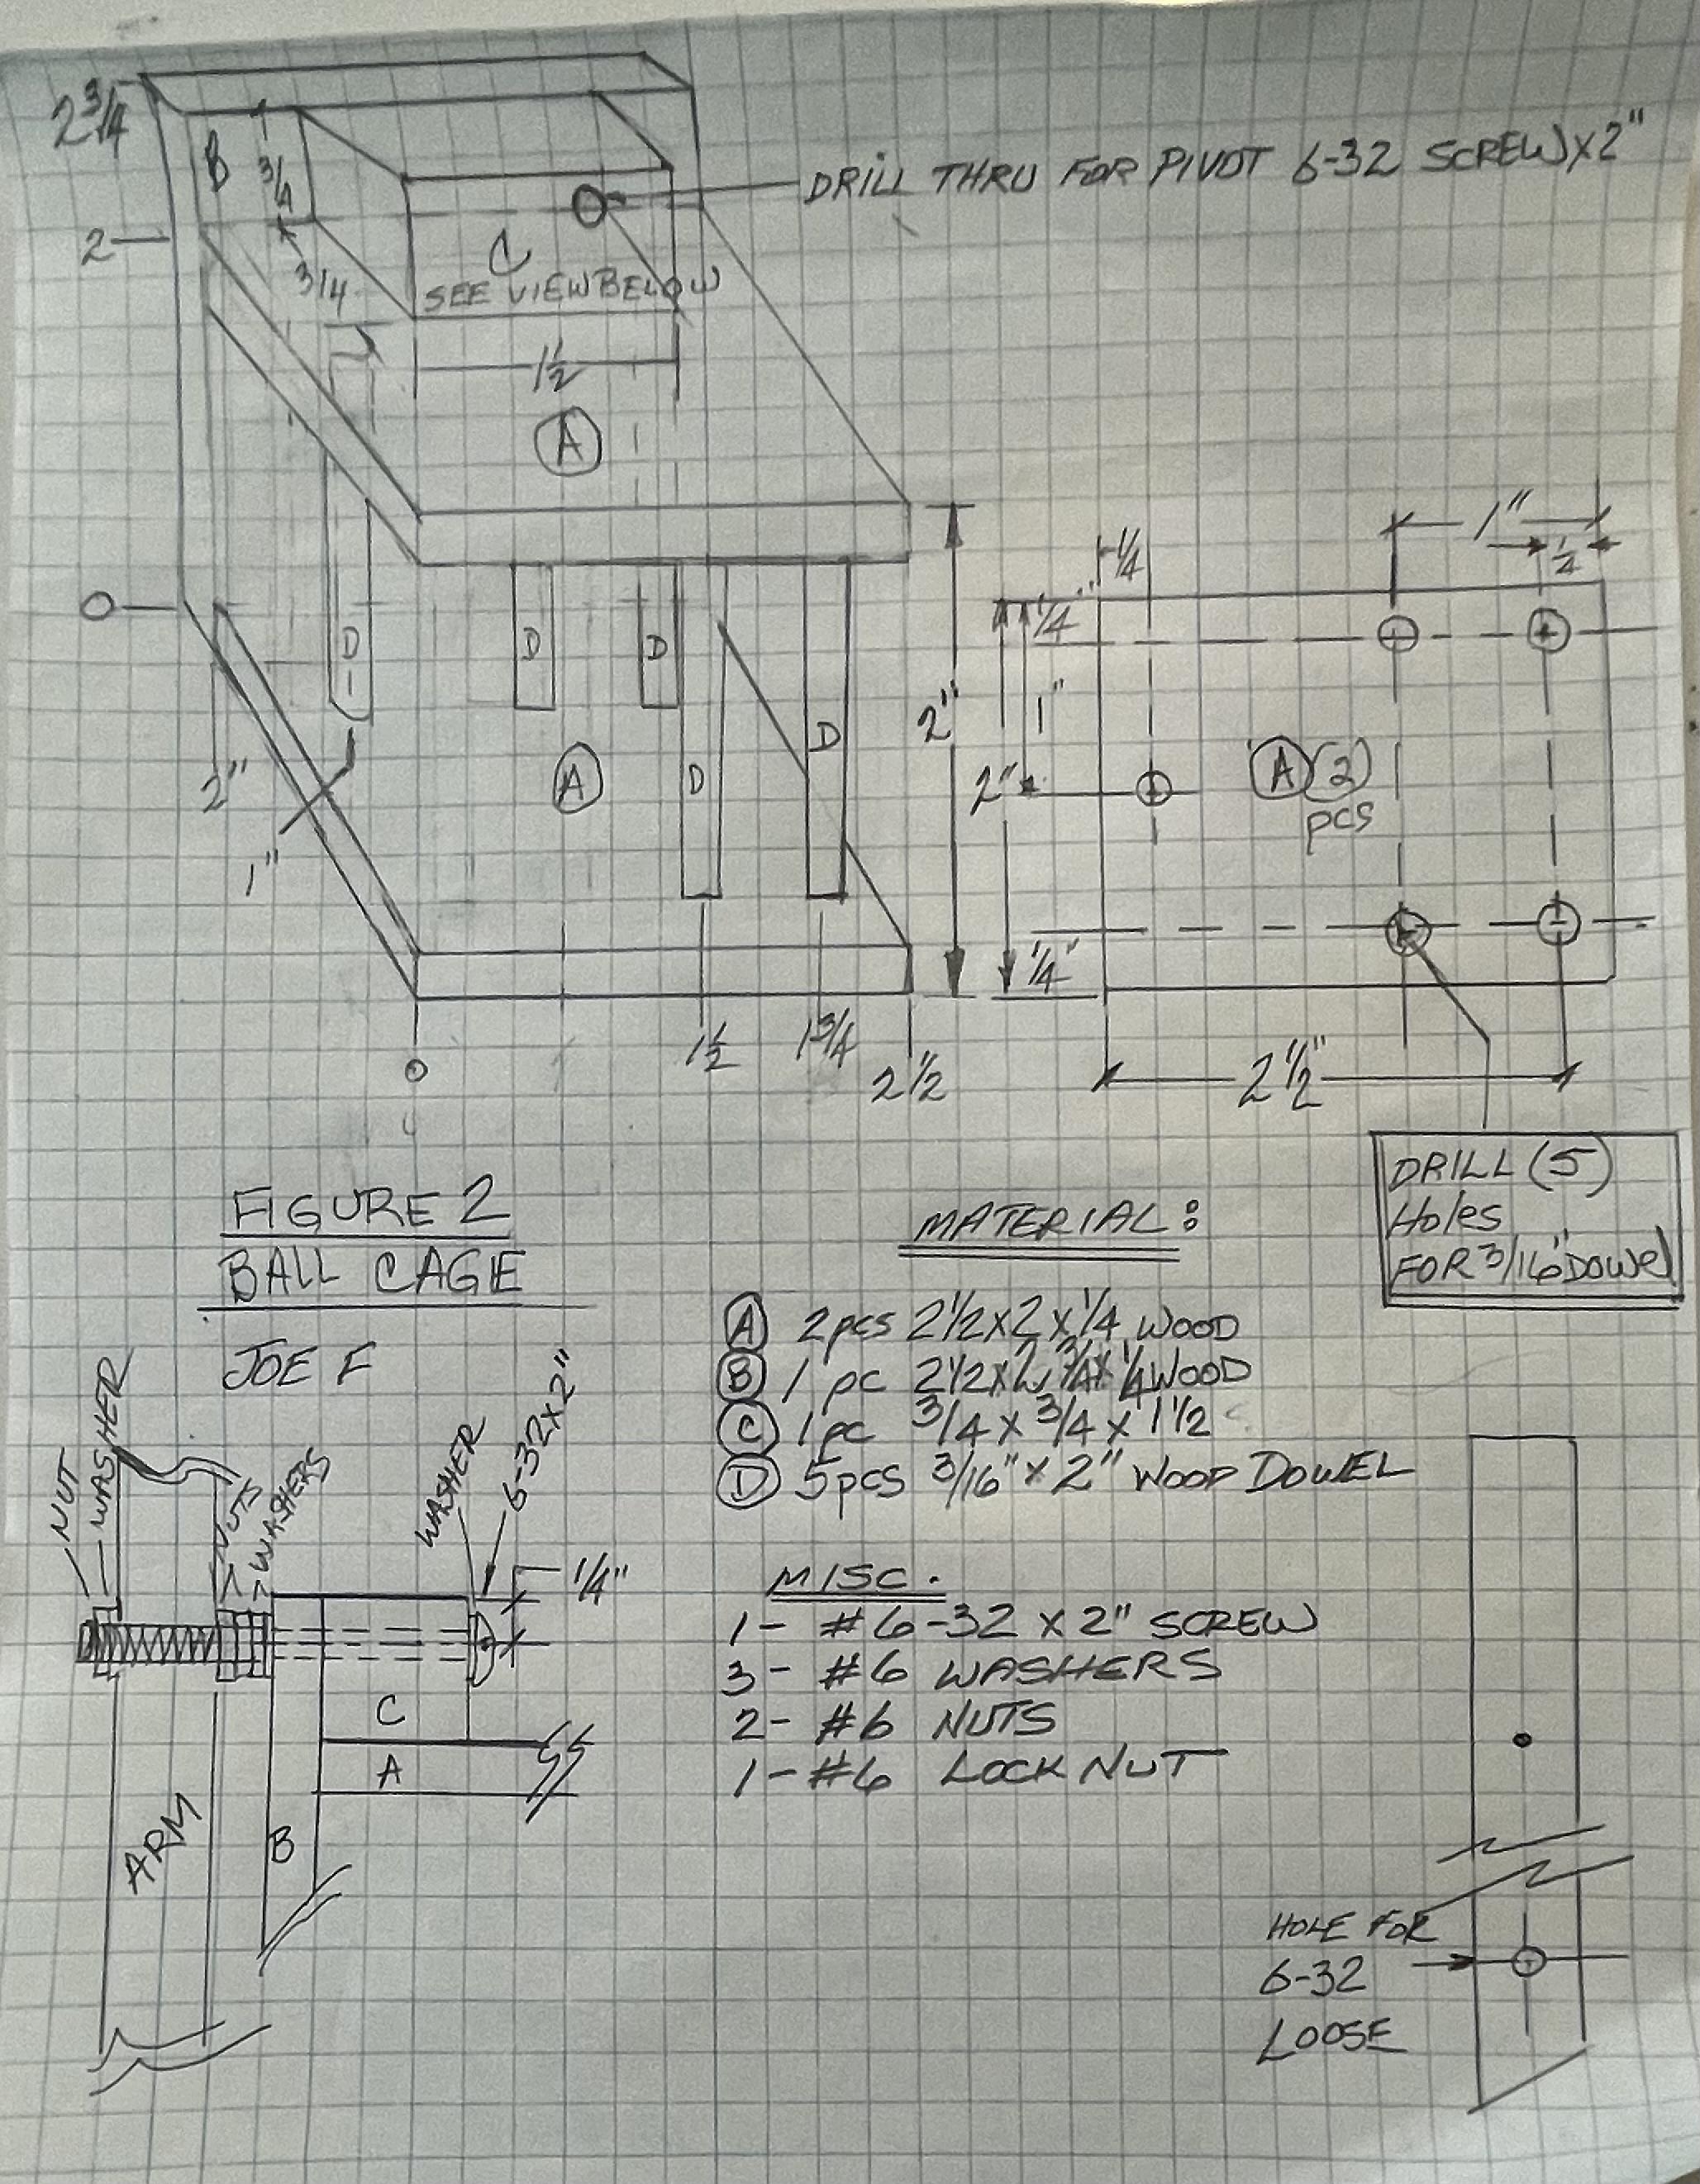 2 3/4
B
3/4
DRILL THRU FOR PIVOT 6-32 SCREW X 2"
2
3/4
C
SEE VIEW BELOW
1 1/2
A
1"
1/4
1/4
1/4"
0
D
D
D
D
D
2"
1"
2"
A (2)
pcs
A
2"
1"
1/4"
0
1 1/2
1 3/4
2 1/2
2 1/2"
DRILL (5)
Holes
FOR 3/16" DOWEL
FIGURE 2
BALL CAGE
JOE F
MATERIAL:
A 2pcs 2 1/2 X 2 X 1/4 WOOD
B 1 pc 2 1/2 X 2 3/4 X 1/4 WOOD
C 1pc 3/4 X 3/4 X 1 1/2
D 5pcs 3/16" X 2" WOOD DOWEL
MISC.
1- #6-32 X 2" SCREW
3- #6 WASHERS
2- #6 NUTS
1- #6 LOCK NUT
NUT
WASHER
NUTS
WASHERS
WASHER
6-32X2"
1/4"
C
A
B
ARM
HOLE FOR
6-32
LOOSE